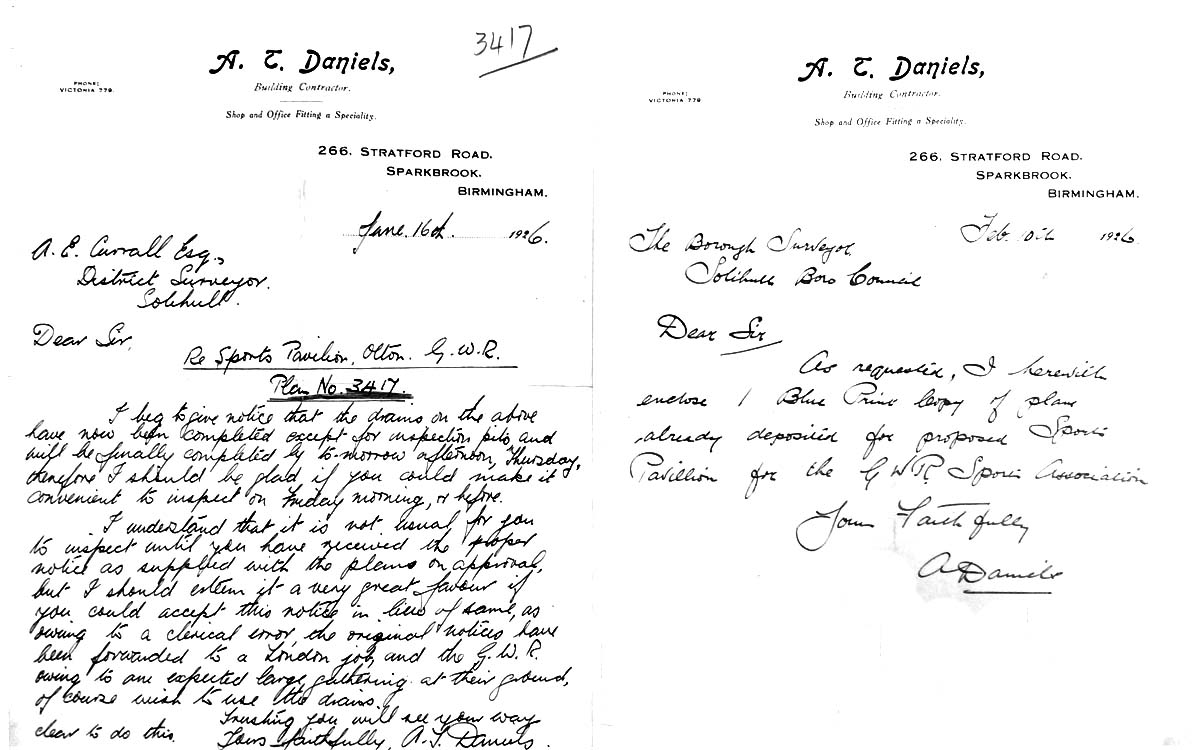 3417
A. T. Daniels,
PHONE:
VICTORIA 779.
Building Contractor.
Shop and Office Fitting a Speciality.
266, STRATFORD ROAD.
SPARKBROOK.
BIRMINGHAM.
June 16th. 1926.
A. E. Currall Esq.,
District Surveyor.
Solihull.
Dear Sir,
Re Sports Pavilion, Olton. G.W.R.
Plan No. 3417.
I beg to give notice that the drains on the above
have now been completed except for inspection pits and
will be finally completed by to-morrow afternoon, Thursday,
therefore I should be glad if you could make it
convenient to inspect on Friday morning, or before.
I understand that it is not usual for you
to inspect until you have received the proper
notice as supplied with the plans on approval,
but I should esteem it a very great favour if
you could accept this notice in lieu of same, as
owing to a clerical error, the original notices have
been forwarded to a London job, and the G.W.R.
owing to an expected large gathering at their ground,
of course wish to use the drains.
Trusting you will see your way
clear to do this.
Yours faithfully, A. T. Daniels.
A. T. Daniels,
PHONE:
VICTORIA 779
Building Contractor.
Shop and Office Fitting a Speciality.
266, STRATFORD ROAD.
SPARKBROOK.
BIRMINGHAM.
Feb. 10th 1926
The Borough Surveyor.
Solihull Boro Council
Dear Sir
As requested, I herewith
enclose 1 Blue Print Copy of plan
already deposited for proposed Sports
Pavillion for the GWR Sports Association
Yours Faithfully
A Daniels